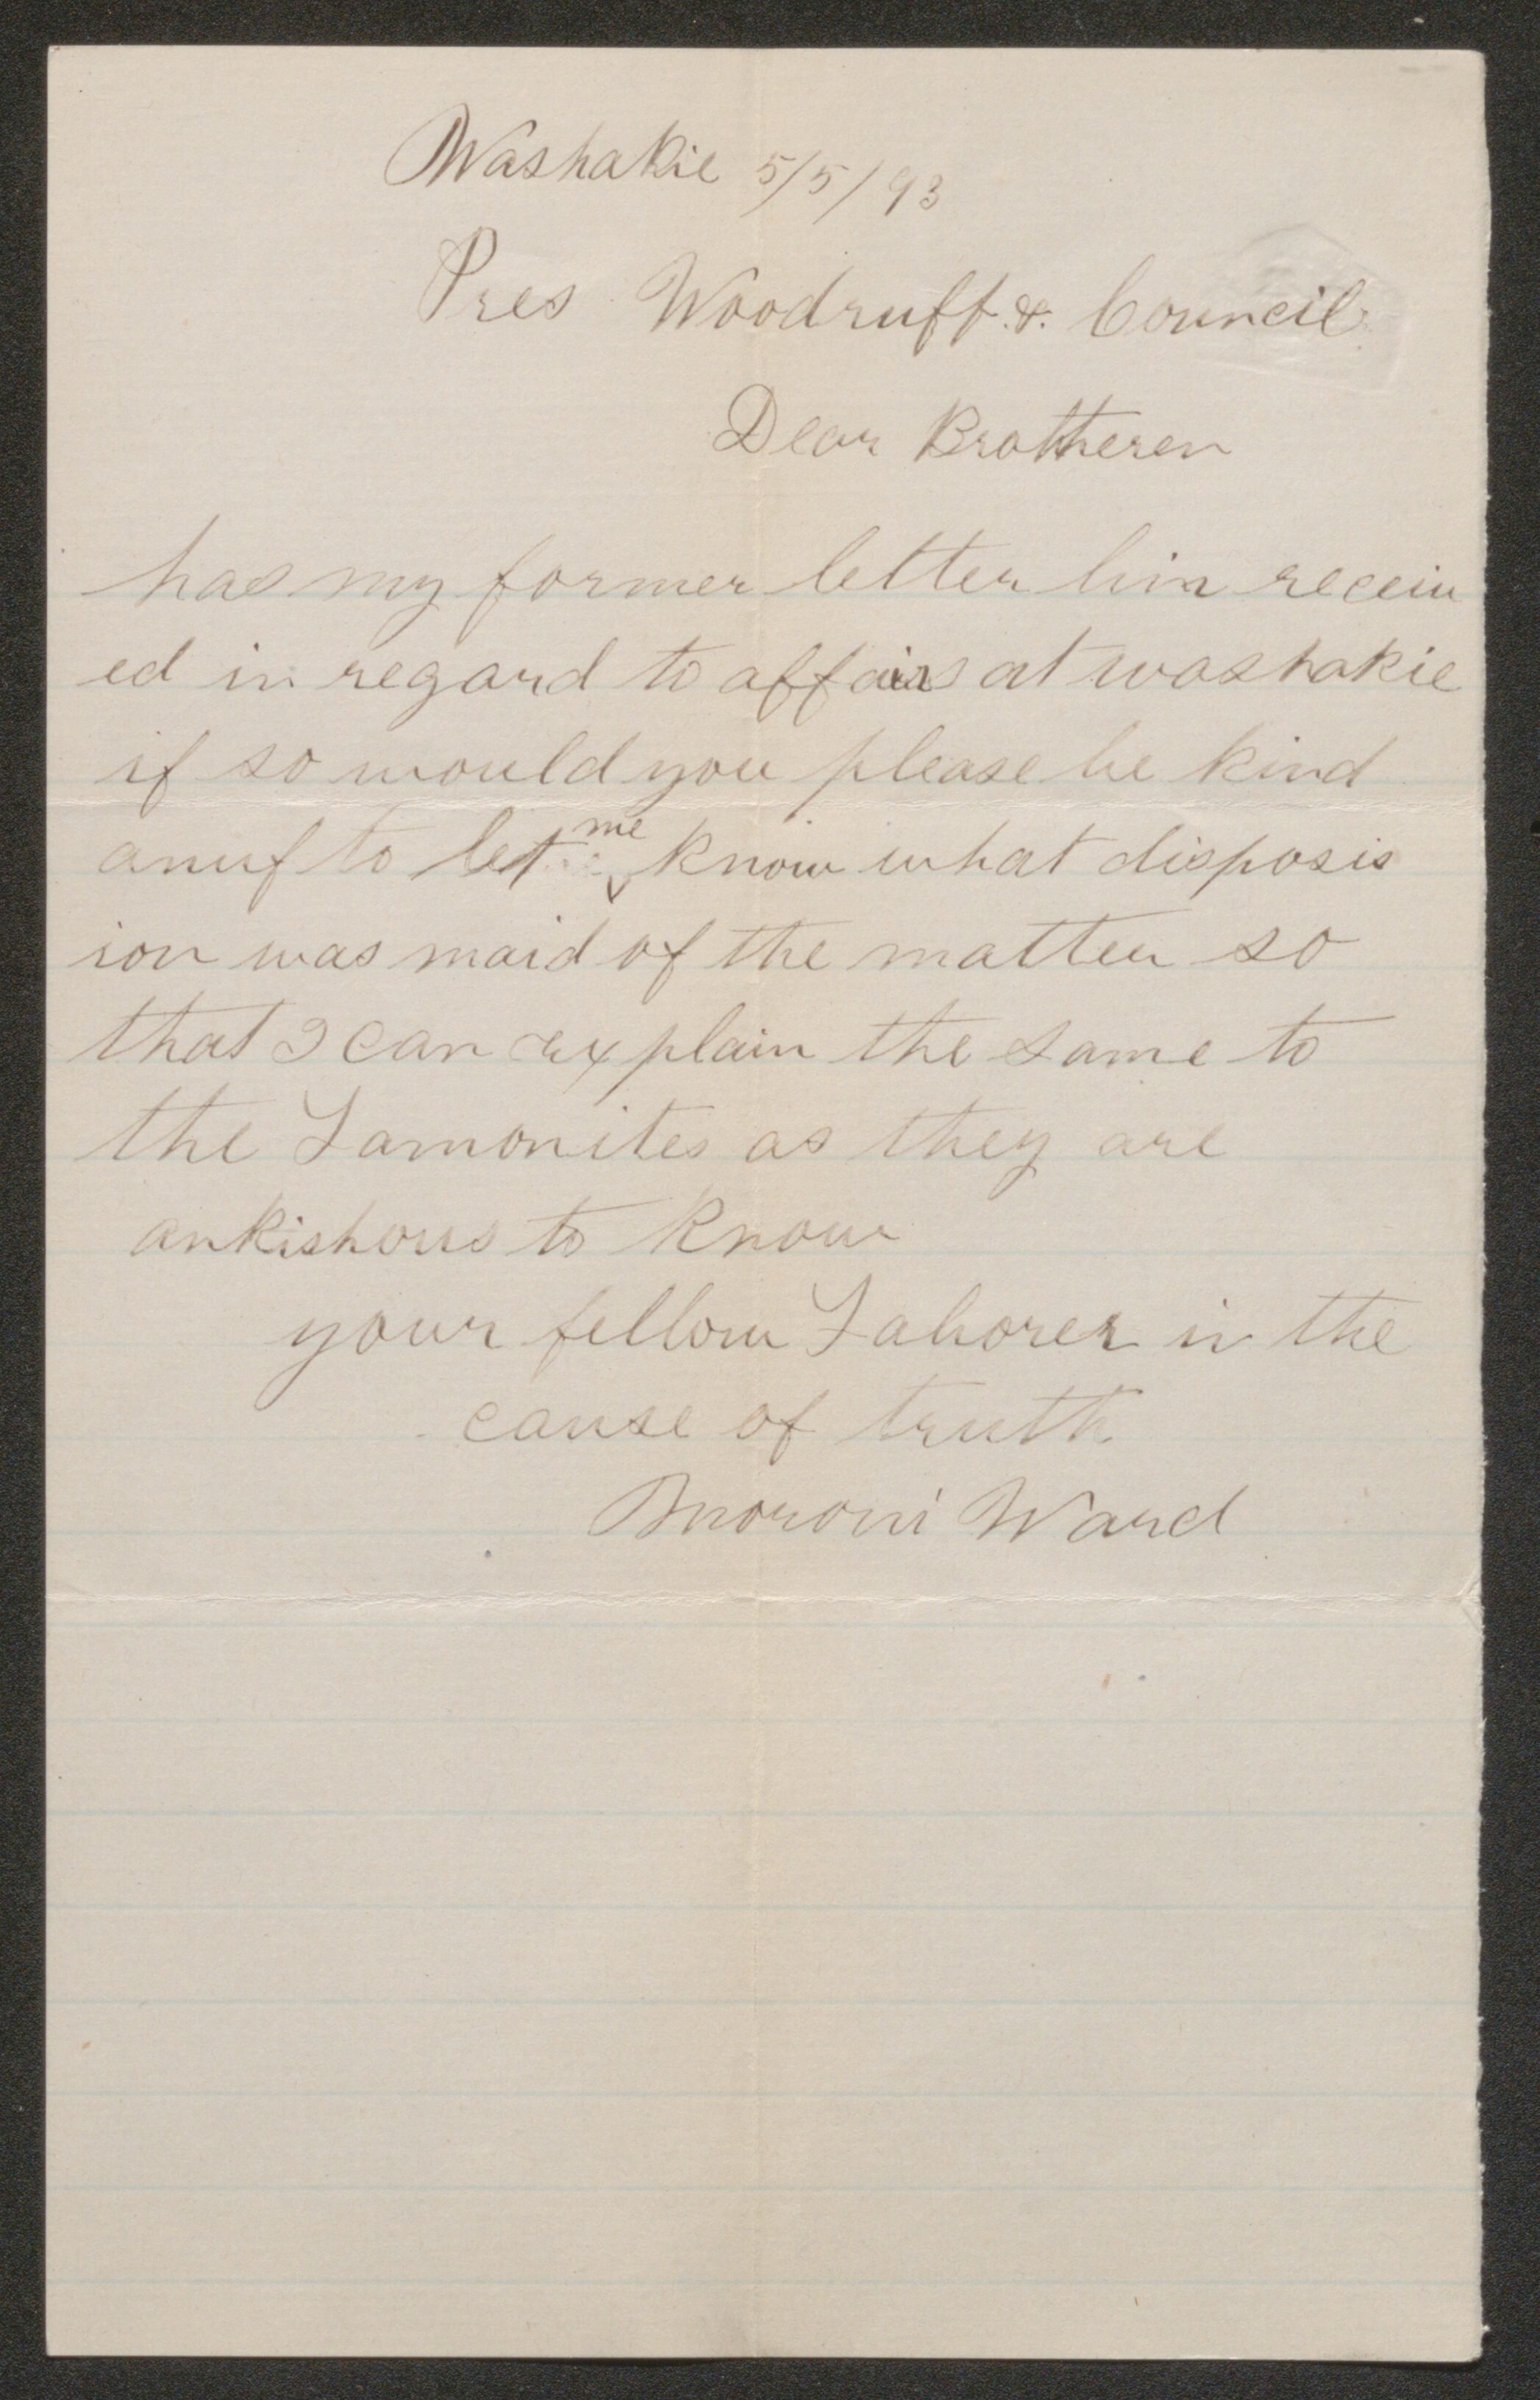 Washakie 5/5/93
Pres Woodruff & Council
Dear Brotheren
has my former letter bin receiv
ed in regard to affairs at washakie
if so would you please be kind
anuf to let me know what disposis
ion was maid of the matter so
that I can explain the same to
the Lamonites as they are
ankishous to know
your fellow Laborer in the
cause of truth
Moroni Ward